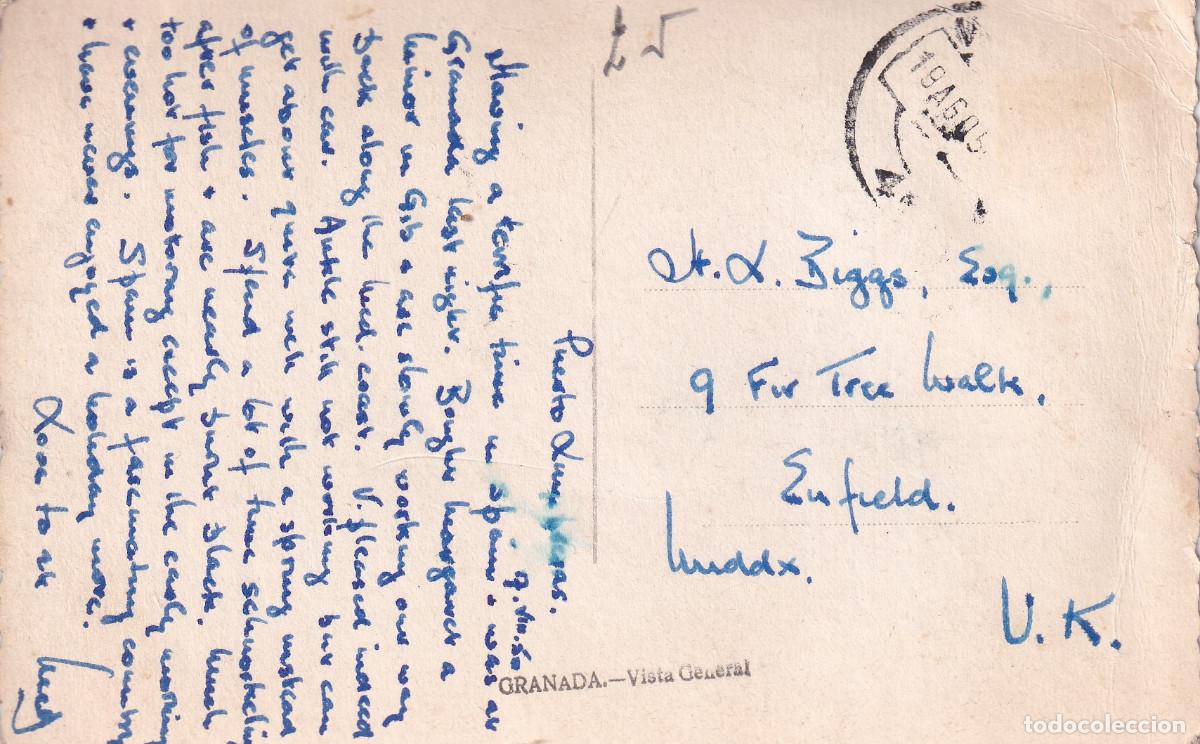 Puerto Lumbreras.
9.VIII.50
Having a terrific time in Spain & was at
Granada last night. Bought Margaret a
Minor in Gib & are slowly working our way
back along the Med. coast. V. pleased indeed
with car. Ankle still not working but can
get about quite well with a spring instead
of muscles. Spend a lot of time schnorkeling
after fish & are nearly burnt black. Much
too hot for motoring except in the early morning
& evenings. Spain is a fascinating country
& have never enjoyed a holiday more.
Love to all
£5
19 AGO 5
H. L. Biggs, Esq.,
9 Fir Tree Walk,
Enfield.
Middx.
U.K.
GRANADA.—Vista General
todocoleccion